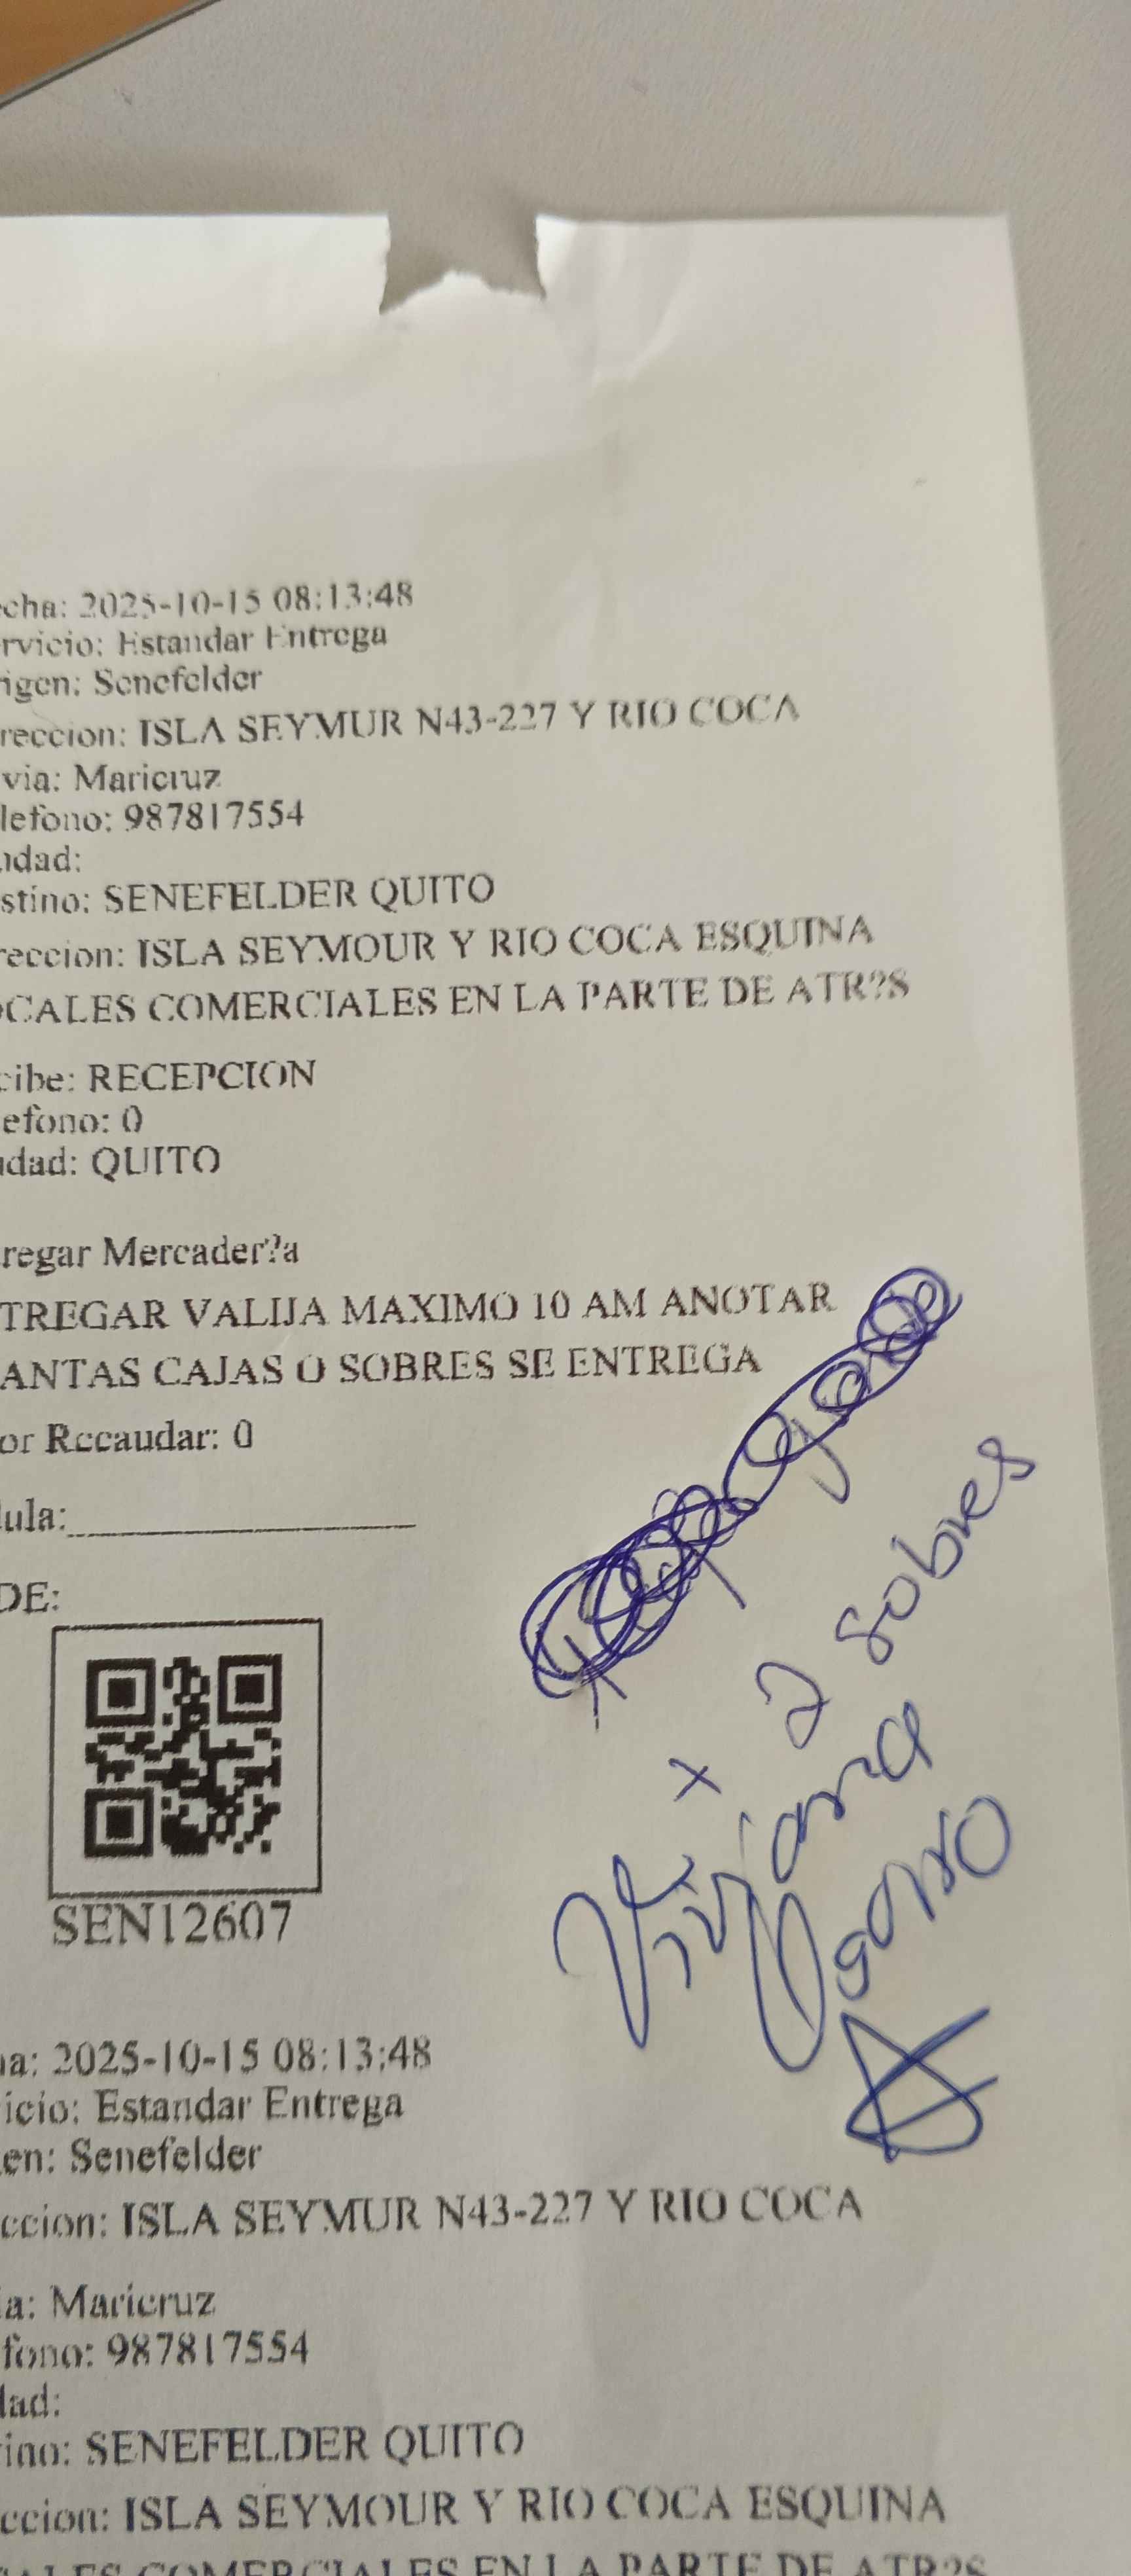 echa: 2025-10-15 08:13:48
ervicio: Estandar Entrega
rigen: Senefelder
reccion: ISLA SEYMUR N43-227 Y RIO COCA
via: Maricruz
lefono: 987817554
udad:
stino: SENEFELDER QUITO
reccion: ISLA SEYMOUR Y RIO COCA ESQUINA
OCALES COMERCIALES EN LA PARTE DE ATR?S
cibe: RECEPCION
efono: 0
udad: QUITO
regar Mercader?a
TREGAR VALIJA MAXIMO 10 AM ANOTAR
ANTAS CAJAS O SOBRES SE ENTREGA
or Recaudar: 0
lula:
DE:
x 2 sobres
Viviana
SEN12607
na: 2025-10-15 08:13:48
icio: Estandar Entrega
en: Senefelder
ccion: ISLA SEYMUR N43-227 Y RIO COCA
ia: Maricruz
fono: 987817554
dad:
ino: SENEFELDER QUITO
ccion: ISLA SEYMOUR Y RIO COCA ESQUINA
ALES COMERCIALES EN LA PARTE DE ATR?S